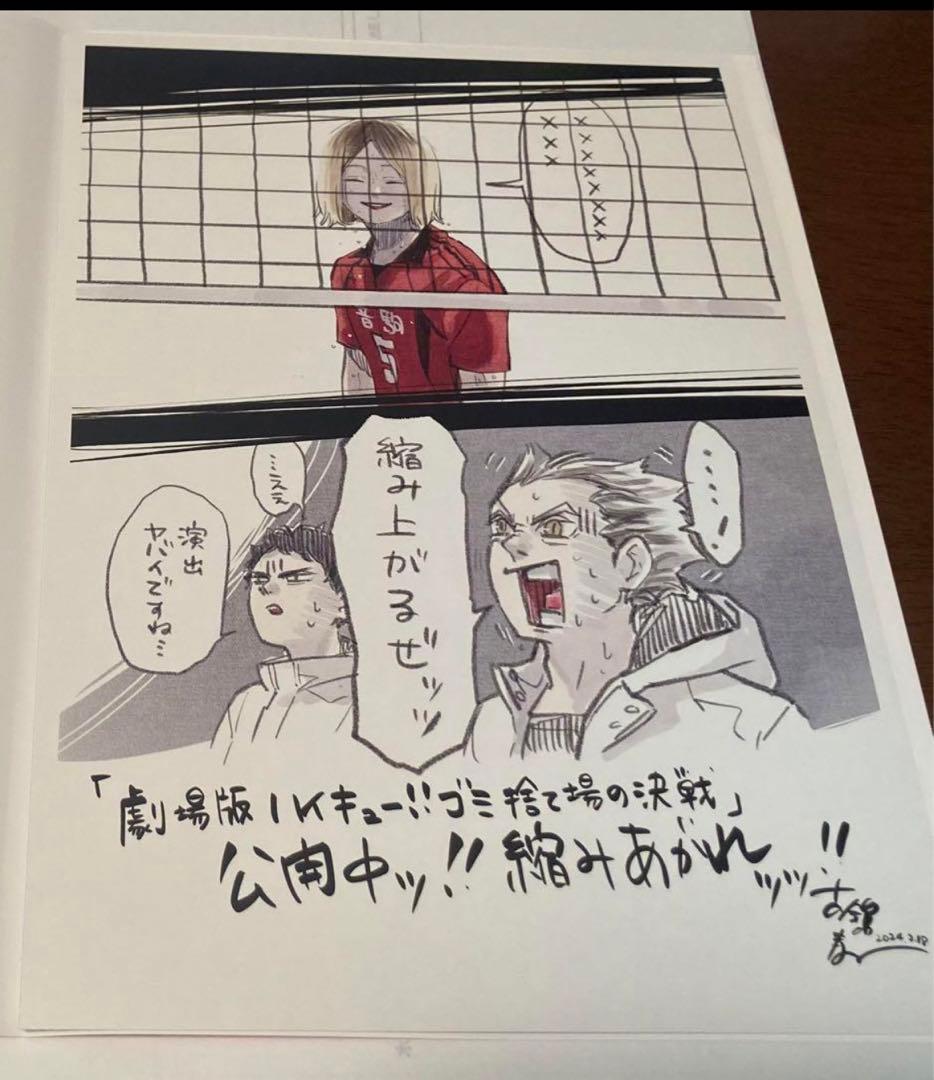 ×××××××
×××
音駒
5
……!
縮み上がるぜッッ
……ええ
演出
ヤバイですね…
「劇場版ハイキュー!!ゴミ捨て場の決戦」
公開中ッ!!縮みあがれッッッ!!
古舘
春一
2024.2.18